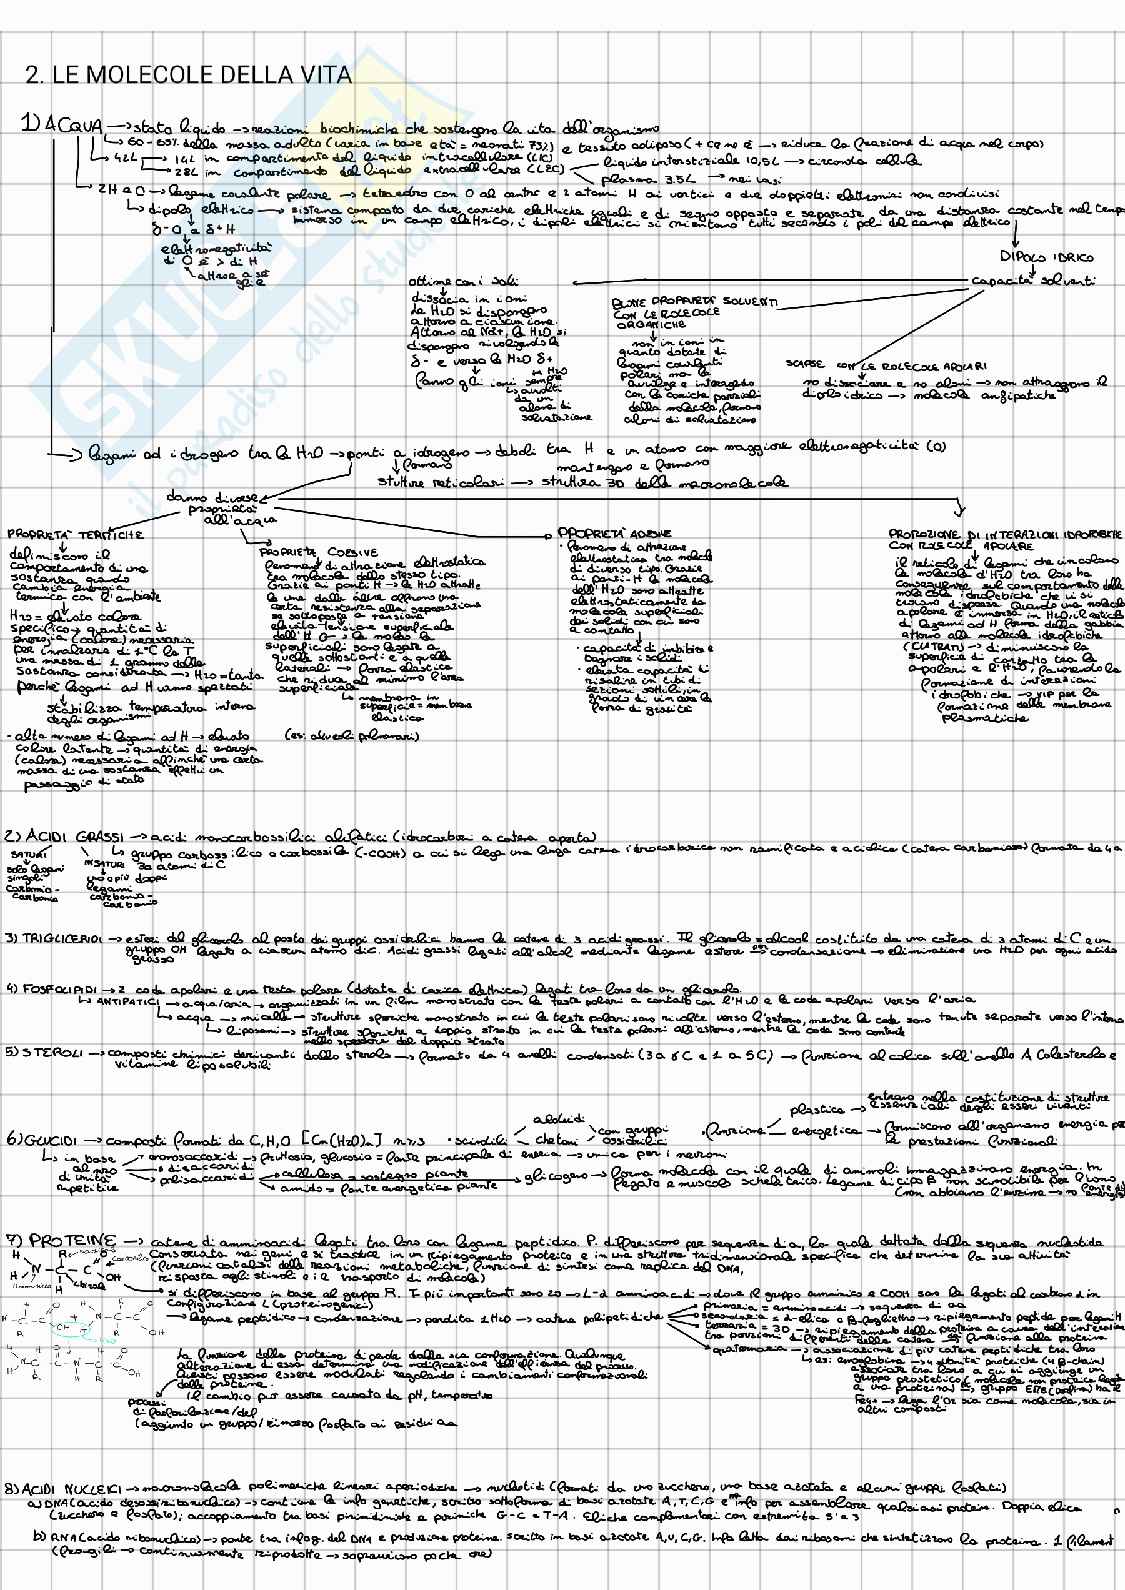 2. LE MOLECOLE DELLA VITA
1) ACQUA → stato liquido → reazioni biochimiche che sostengono la vita dell'organismo
60-65% della massa adulta (varia in base età = neonati 75%) e tessuto adiposo (+ ce ne è → riduce la frazione di acqua nel corpo)
42L → 14L in compartimento del liquido intracellulare (LIC)
28L in compartimento del liquido extracellulare (LEC)
liquido interstiziale 10,5L → circonda cellula
plasma 3.5L → nei vasi
2H e O → legame covalente polare → tetraedro con O al centro e 2 atomi H ai vertici e due doppietti elettronici non condivisi
dipolo elettrico → sistema composto da due cariche elettriche uguali e di segno opposto e separate da una distanza costante nel tempo
immerso in un campo elettrico, i dipoli elettrici si orientano tutti secondo i poli del campo elettrico
δ-O e δ+H
elettronegatività
di O è > di H
attrae a sé
gli e-
DIPOLO IDRICO
capacità solventi
ottime con i sali
dissocia in ioni
la H2O si dispongono
attorno a ciascun ione.
Attorno al Na+, le H2O si
dispongono rivolgendo la
δ- e verso la H2O δ+
fanno gli ioni sempre
avvolti
da un
alone di
solvatazione
BUONE PROPRIETÀ SOLVENTI
CON LE MOLECOLE
ORGANICHE
non in ioni in
quanto dotate di
legami covalenti
polari ma le
avvolge e interagendo
con le cariche parziali
della molecola, formano
aloni di solvatazione
SCARSE CON LE MOLECOLE APOLARI
no dissociare e no aloni → non attraggono il
dipolo idrico → molecole anfipatiche
legami ad idrogeno tra le H2O → ponti a idrogeno → deboli tra H e un atomo con maggiore elettronegatività (O)
formano
mantengono e formano
strutture reticolari → struttura 3D delle macromolecole
danno diverse
proprietà
all'acqua
PROPRIETÀ TERMICHE
definiscono il
comportamento di una
sostanza quando
cambia energia
termica con l'ambiente
H2O = elevato calore
specifico → quantità di
energia (calore) necessaria
per innalzare di 1°C la T
una massa di 1 grammo della
sostanza considerata → H2O = tanta
perché legami ad H vanno spezzati
stabilizza temperatura interna
degli organismi
- alto numero di legami ad H → elevato
calore latente → quantità di energia
(calore) necessaria affinché una certa
massa di una sostanza effettui un
passaggio di stato
PROPRIETÀ COESIVE
fenomeni di attrazione elettrostatica
tra molecole dello stesso tipo.
Grazie ai ponti H → le H2O attratte
le une dalle altre offrono una
certa resistenza alla separazione
se sottoposte a tensione
elevata tensione superficiale
dell'H2O → le molecole
superficiali sono legate a
quelle sottostanti e a quelle
laterali → forza elastica
che riduce al minimo l'area
superficiale
membrana in
superficie = membrana
elastica
(es: alveoli polmonari)
PROPRIETÀ ADESIVE
· fenomeno di attrazione
elettrostatica tra molecole
di diverso tipo. Grazie
ai ponti-H le molecole
dell'H2O sono attratte
elettrostaticamente da
molecole superficiali
dei solidi con cui sono
a contatto
· capacità di imbibire e
bagnare i solidi
· elevata capacità di
risalire in tubi di
sezioni sottili, in
grado di vincere la
forza di gravità
PROMOZIONE DI INTERAZIONI IDROFOBICHE
CON MOLECOLE APOLARI
il reticolo di legami che vincolano
le molecole d'H2O tra loro ha
conseguenze sul comportamento delle
molecole idrofobiche che vi si
trovano disperse. Quando una molecola
apolare è immersa in H2O, il reticolo
di legami ad H forma delle gabbie
attorno alle molecole idrofobiche
(CLATRATI) → diminuiscono la
superficie di contatto tra le
apolari e l'H2O, favorendo la
formazione di interazioni
idrofobiche → VIP per la
formazione delle membrane
plasmatiche
2) ACIDI GRASSI → acidi monocarbossilici alifatici (idrocarburi a catena aperta)
gruppo carbossilico o carbossile (-COOH) a cui si lega una lunga catena idrocarburica non ramificata e aciclica (catena carboniosa) formata da 4 a
30 atomi di C
SATURI
solo legami
singoli
carbonio-
carbonio
INSATURI
uno o più doppi
legami
carbonio-
carbonio
3) TRIGLICERIDI → esteri del glicerolo al posto dei gruppi ossidrilici hanno le catene di 3 acidi grassi. Il glicerolo = alcool costituito da una catena di 3 atomi di C e un
gruppo OH legato a ciascun atomo di C. Acidi grassi legati all'alcol mediante legame estere → condensazione → eliminazione una H2O per ogni acido
grasso
4) FOSFOLIPIDI → 2 code apolari e una testa polare (dotata di carica elettrica) legati tra loro da un glicerolo
ANFIPATICI → acqua/aria → organizzati in un film monostrato con le teste polari a contatto con l'H2O e le code apolari verso l'aria
acqua → micelle → strutture sferiche monostrato in cui le teste polari sono rivolte verso l'esterno, mentre le code sono tenute separate verso l'interno
liposomi → strutture sferiche a doppio strato in cui le teste polari all'esterno, mentre le code sono contenute
nello spessore del doppio strato
5) STEROLI → composti chimici derivanti dallo sterolo → formato da 4 anelli condensati (3 a 6C e 1 a 5C) → funzione alcolica sull'anello A Colesterolo e
vitamine liposolubili
6) GLUCIDI → composti formati da C, H, O [Cn(H2O)n] n≥3
· scindili
aldeidi
chetoni
con gruppi
ossidrilici
· funzione
plastica → entrano nella costituzione di strutture
essenziali degli esseri viventi
energetica → forniscono all'organismo energia per
le prestazioni funzionali
in base
al nro
di unità
ripetitive
monosaccaridi → fruttosio, glucosio = fonte principale di energia → unica per i neuroni
disaccaridi
polisaccaridi
cellulosa = sostegno piante
amido = fonte energetica piante
glicogeno → forma molecola con il quale gli animali immagazzinano energia. In
fegato e muscolo scheletrico. Legame di tipo β non scindibile per l'uomo
(non abbiamo l'enzima → no fonte di energia)
7) PROTEINE → catene di amminoacidi legati tra loro con legame peptidico. P. differiscono per sequenza di a, la quale dettata dalla sequenza nucleotida
conservata nei geni e si traduce in un ripiegamento proteico e in una struttura tridimensionale specifica che determina la sua attività
(funzioni catalisi delle reazioni metaboliche, funzione di sintesi come replica del DNA,
risposta agli stimoli e il trasporto di molecole)
si differiscono in base al gruppo R. I più importanti sono 20 → L-α amminoacidi → dove il gruppo amminico e COOH sono legati al carbonio in
configurazione L (proteinogenici)
legame peptidico → condensazione → perdita 1 H2O → catene polipeptidiche
primaria = amminoacidi → sequenza di aa
secondaria = α-elica o β-foglietto → ripiegamento peptide per legami H
terziaria = 3D → ripiegamento della proteina a causa dell'interazione
tra porzioni differenti della catena → funzione alla proteina
quaternaria → associazione di più catene peptidiche tra loro
es: emoglobina → 4 subunità proteiche (4 β-chain)
associate tra loro a cui si aggiunge un
gruppo prostetico (molecole non proteica legata
a una proteina) → gruppo EME (porfirina) ha il
Fe2+ → lega l'O2 sia come molecola, sia in
altri composti
La funzione della proteina dipende dalla sua conformazione. Qualunque
alterazione di essa determina una modificazione dell'efficienza del processo.
Questi possono essere modulati regolando i cambiamenti conformazionali
delle proteine.
il cambio può essere causato da pH, temperatura
processi
di fosforilazione/def
(aggiunto un gruppo/rimosso fosfato ai residui aa
8) ACIDI NUCLEICI → macromolecole polimeriche lineari aperiodiche → nucleotidi (formati da uno zucchero, una base azotata e alcuni gruppi fosfati)
a) DNA (acido desossiribonucleico) → contiene le info genetiche, scritto sottoforma di basi azotate A, T, C, G e info per assemblare qualsiasi protein. Doppia elica
(zucchero e fosfato); accoppiamento tra basi pirimidiniche e puriniche G-C = T-A. Eliche complementari con estremità 5' e 3'
b) RNA (acido ribonucleico) → ponte tra info g. del DNA e produzione proteine. scritto in basi azotate A, U, C, G. Info letta dai ribosomi che sintetizzano la proteina. 1 filament
(fragili → continuamente riprodotte → sopravvivono poche ore)